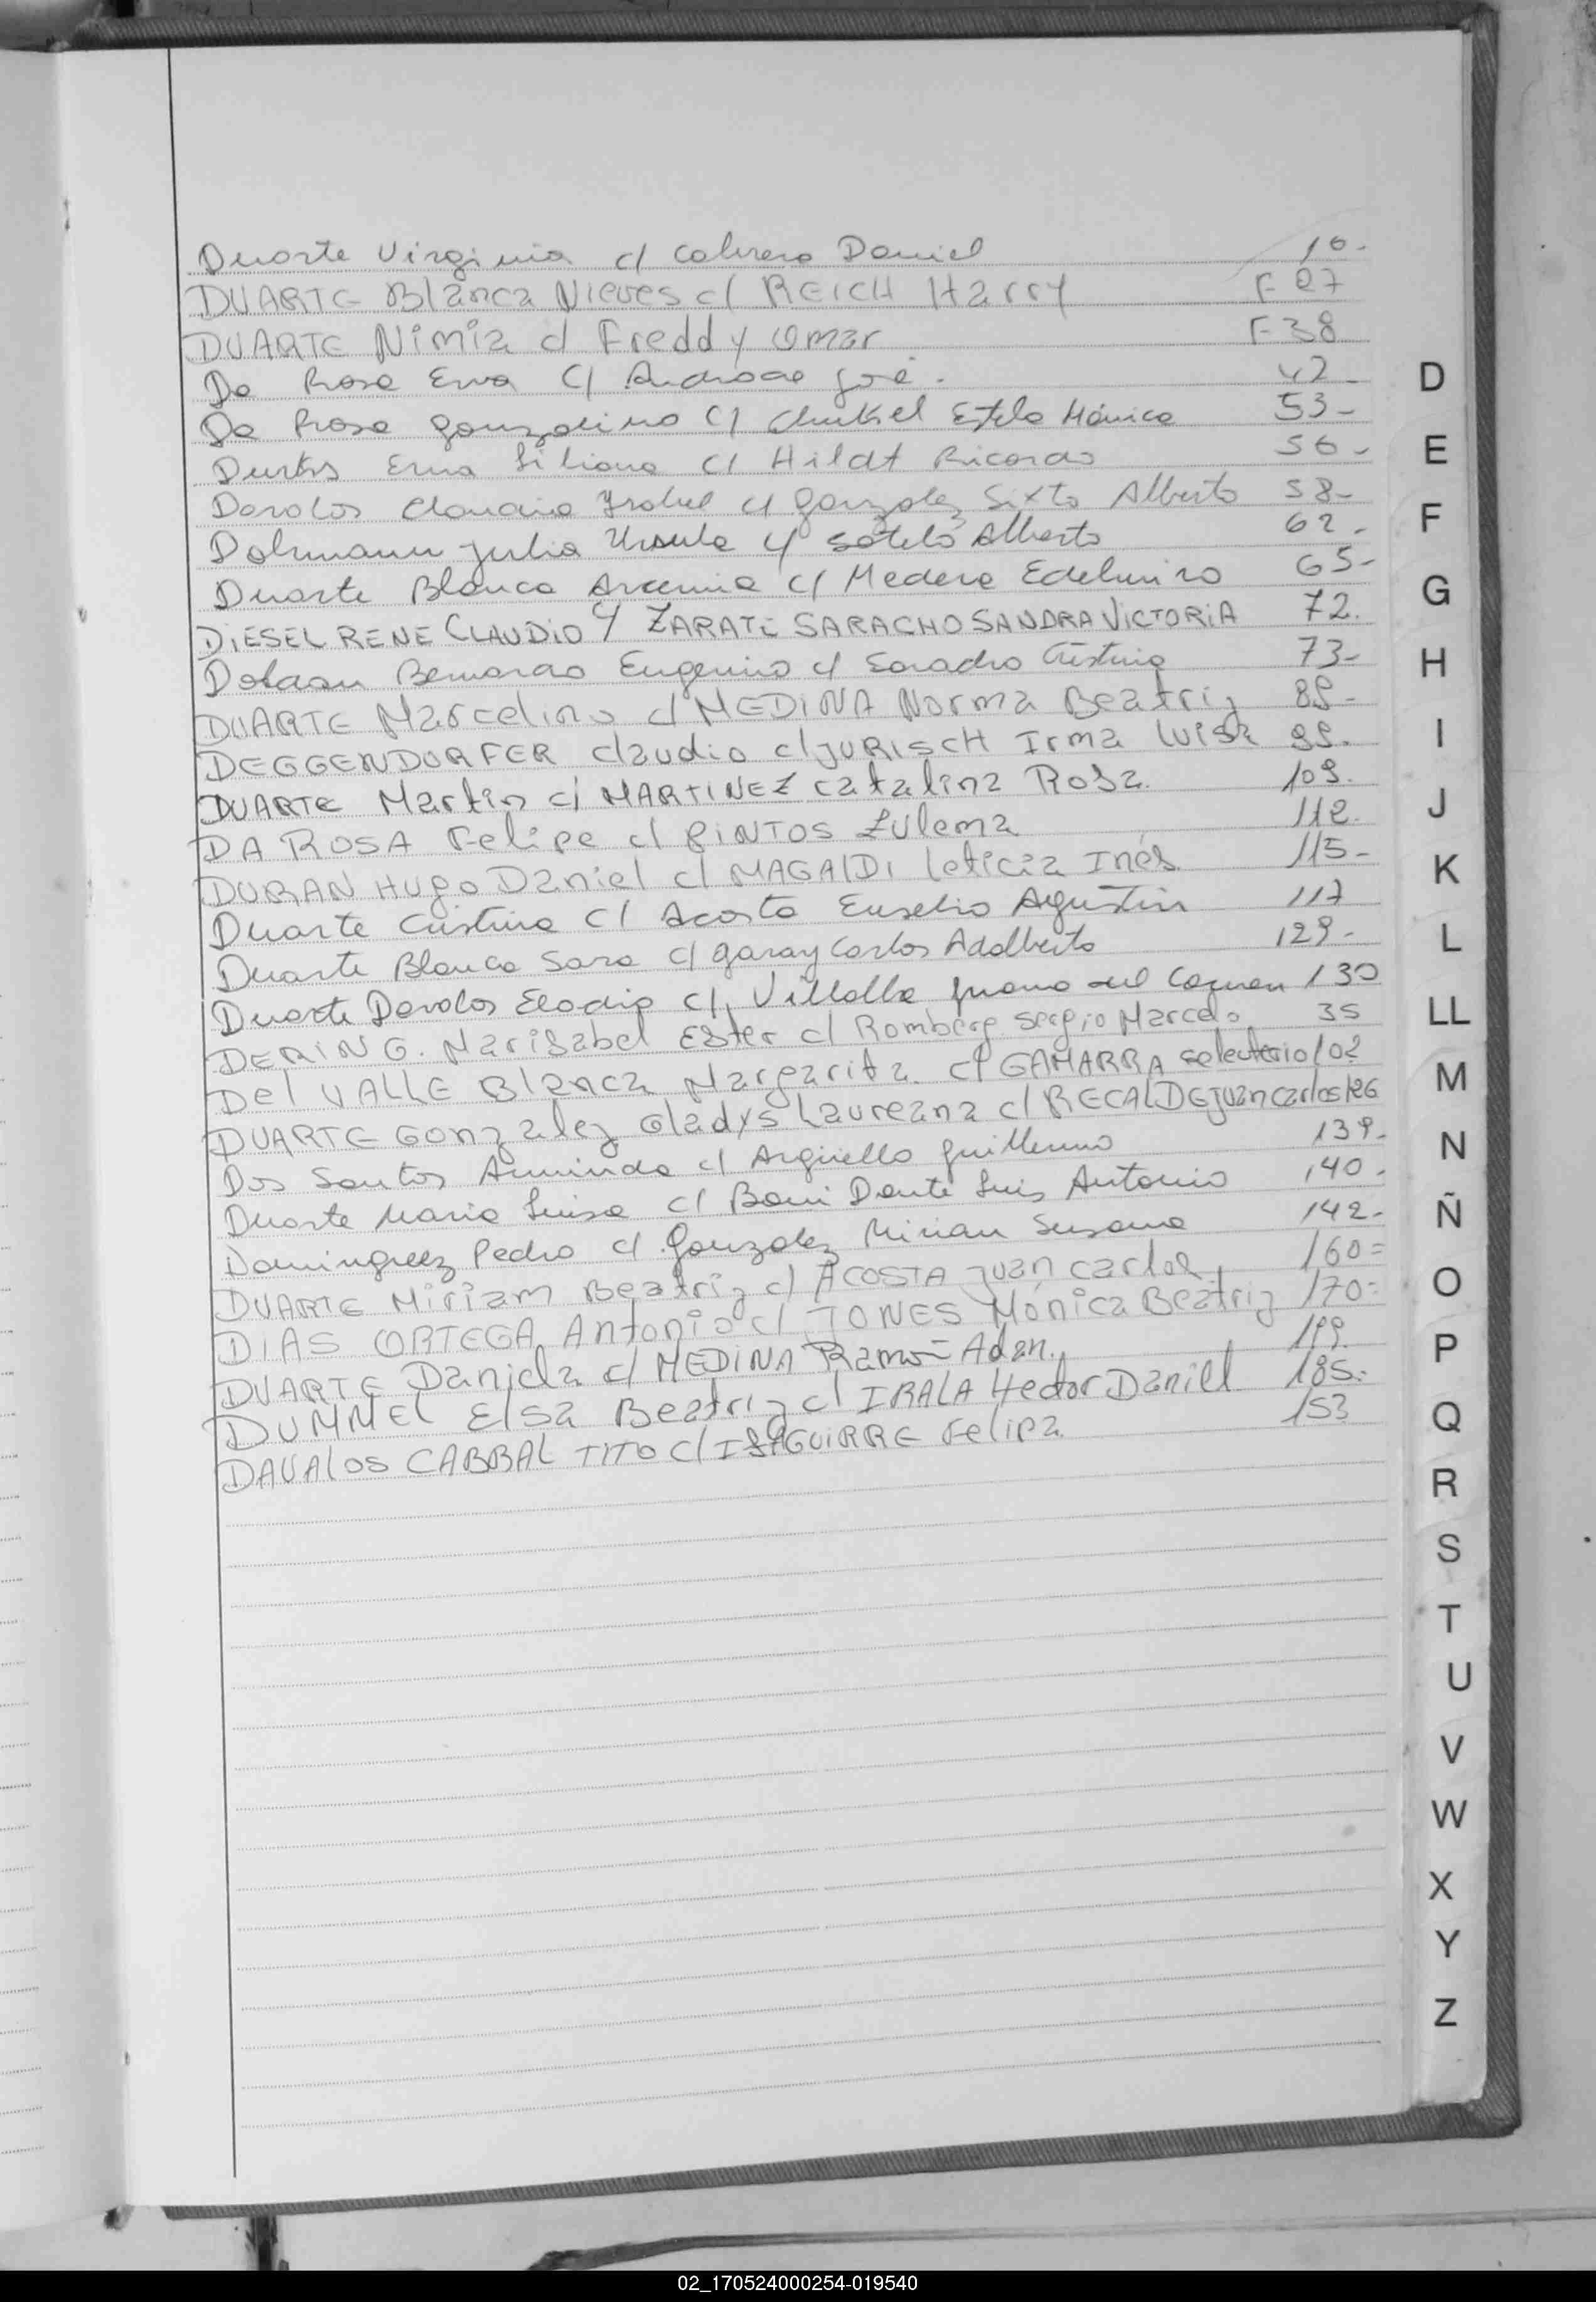 Duarte Virginia c/ Cabrera Daniel 10.
DUARTE Blanca Nieves c/ REICH Harry F 27
DUARTE Nimia c/ Freddy Omar F 38
Da Rosa Erna c/ Andrade José. 42
Da Rosa Gonzalino c/ Estela Mónica 53-
Erna Liliana c/ Hildt Ricardo 56-
Davalos Claudia Isabel c/ Gonzalez Sixto Alberto 58-
Dohmann Julia Ursula c/ Sotelo Alberto 62.
Duarte Blanca Arsenia c/ Medera Edelmiro 65-
DiESEL RENE CLAUDiO c/ ZARATE SARACHO SANDRA VICTORiA 72.
Bernardo Eugenio c/ Cristina 73-
DUARTE Marcelino c/ MEDiNA Norma Beatriz 89-
DEGGENDORFER Claudio c/ JURISCH Irma Luisa 99.
DUARTE Martin c/ MARTINEZ Catalina Rosa. 109.
DA ROSA Felipe c/ PINTOS Zulema 112.
DURAN Hugo Daniel c/ MAGALDI Leticia Inés. 115-
Duarte Cristina c/ Acosta Eusebio Agustin 117
Duarte Blanca Sara c/ Garay Carlos Adalberto 129-
Duarte Davalos Eladio c/ Villalba Juana del Carmen 130
DERING. Marisabel Ester c/ Romberg Sergio Marcelo 35
Del VALLE Blanca Margarita c/ GAMARRA 102
DUARTE Gonzalez Gladys Laureana c/ RECALDE Juan Carlos 126
Dos Santos Arminda c/ Argüello Guillermo 139.
Duarte Maria Luisa c/ Boni Dante Luis Antonio 140.
Dominguez Pedro c/ Gonzalez Mirian Susana 142.
DUARTE Miriam Beatriz c/ ACOSTA Juan Carlos 160=
DIAS ORTEGA Antonio c/ JONES Mónica Beatriz 170=
DUARTE Daniela c/ MEDiNA Ramon Adan.
DUMMEL Elsa Beatriz c/ IRALA Hector Daniel 185.
DAVALOS CABRAL TITO c/ Felipa 153
D
E
F
G
H
I
J
K
L
LL
M
N
Ñ
O
P
Q
R
S
T
U
V
W
X
Y
Z
02_170524000254-019540